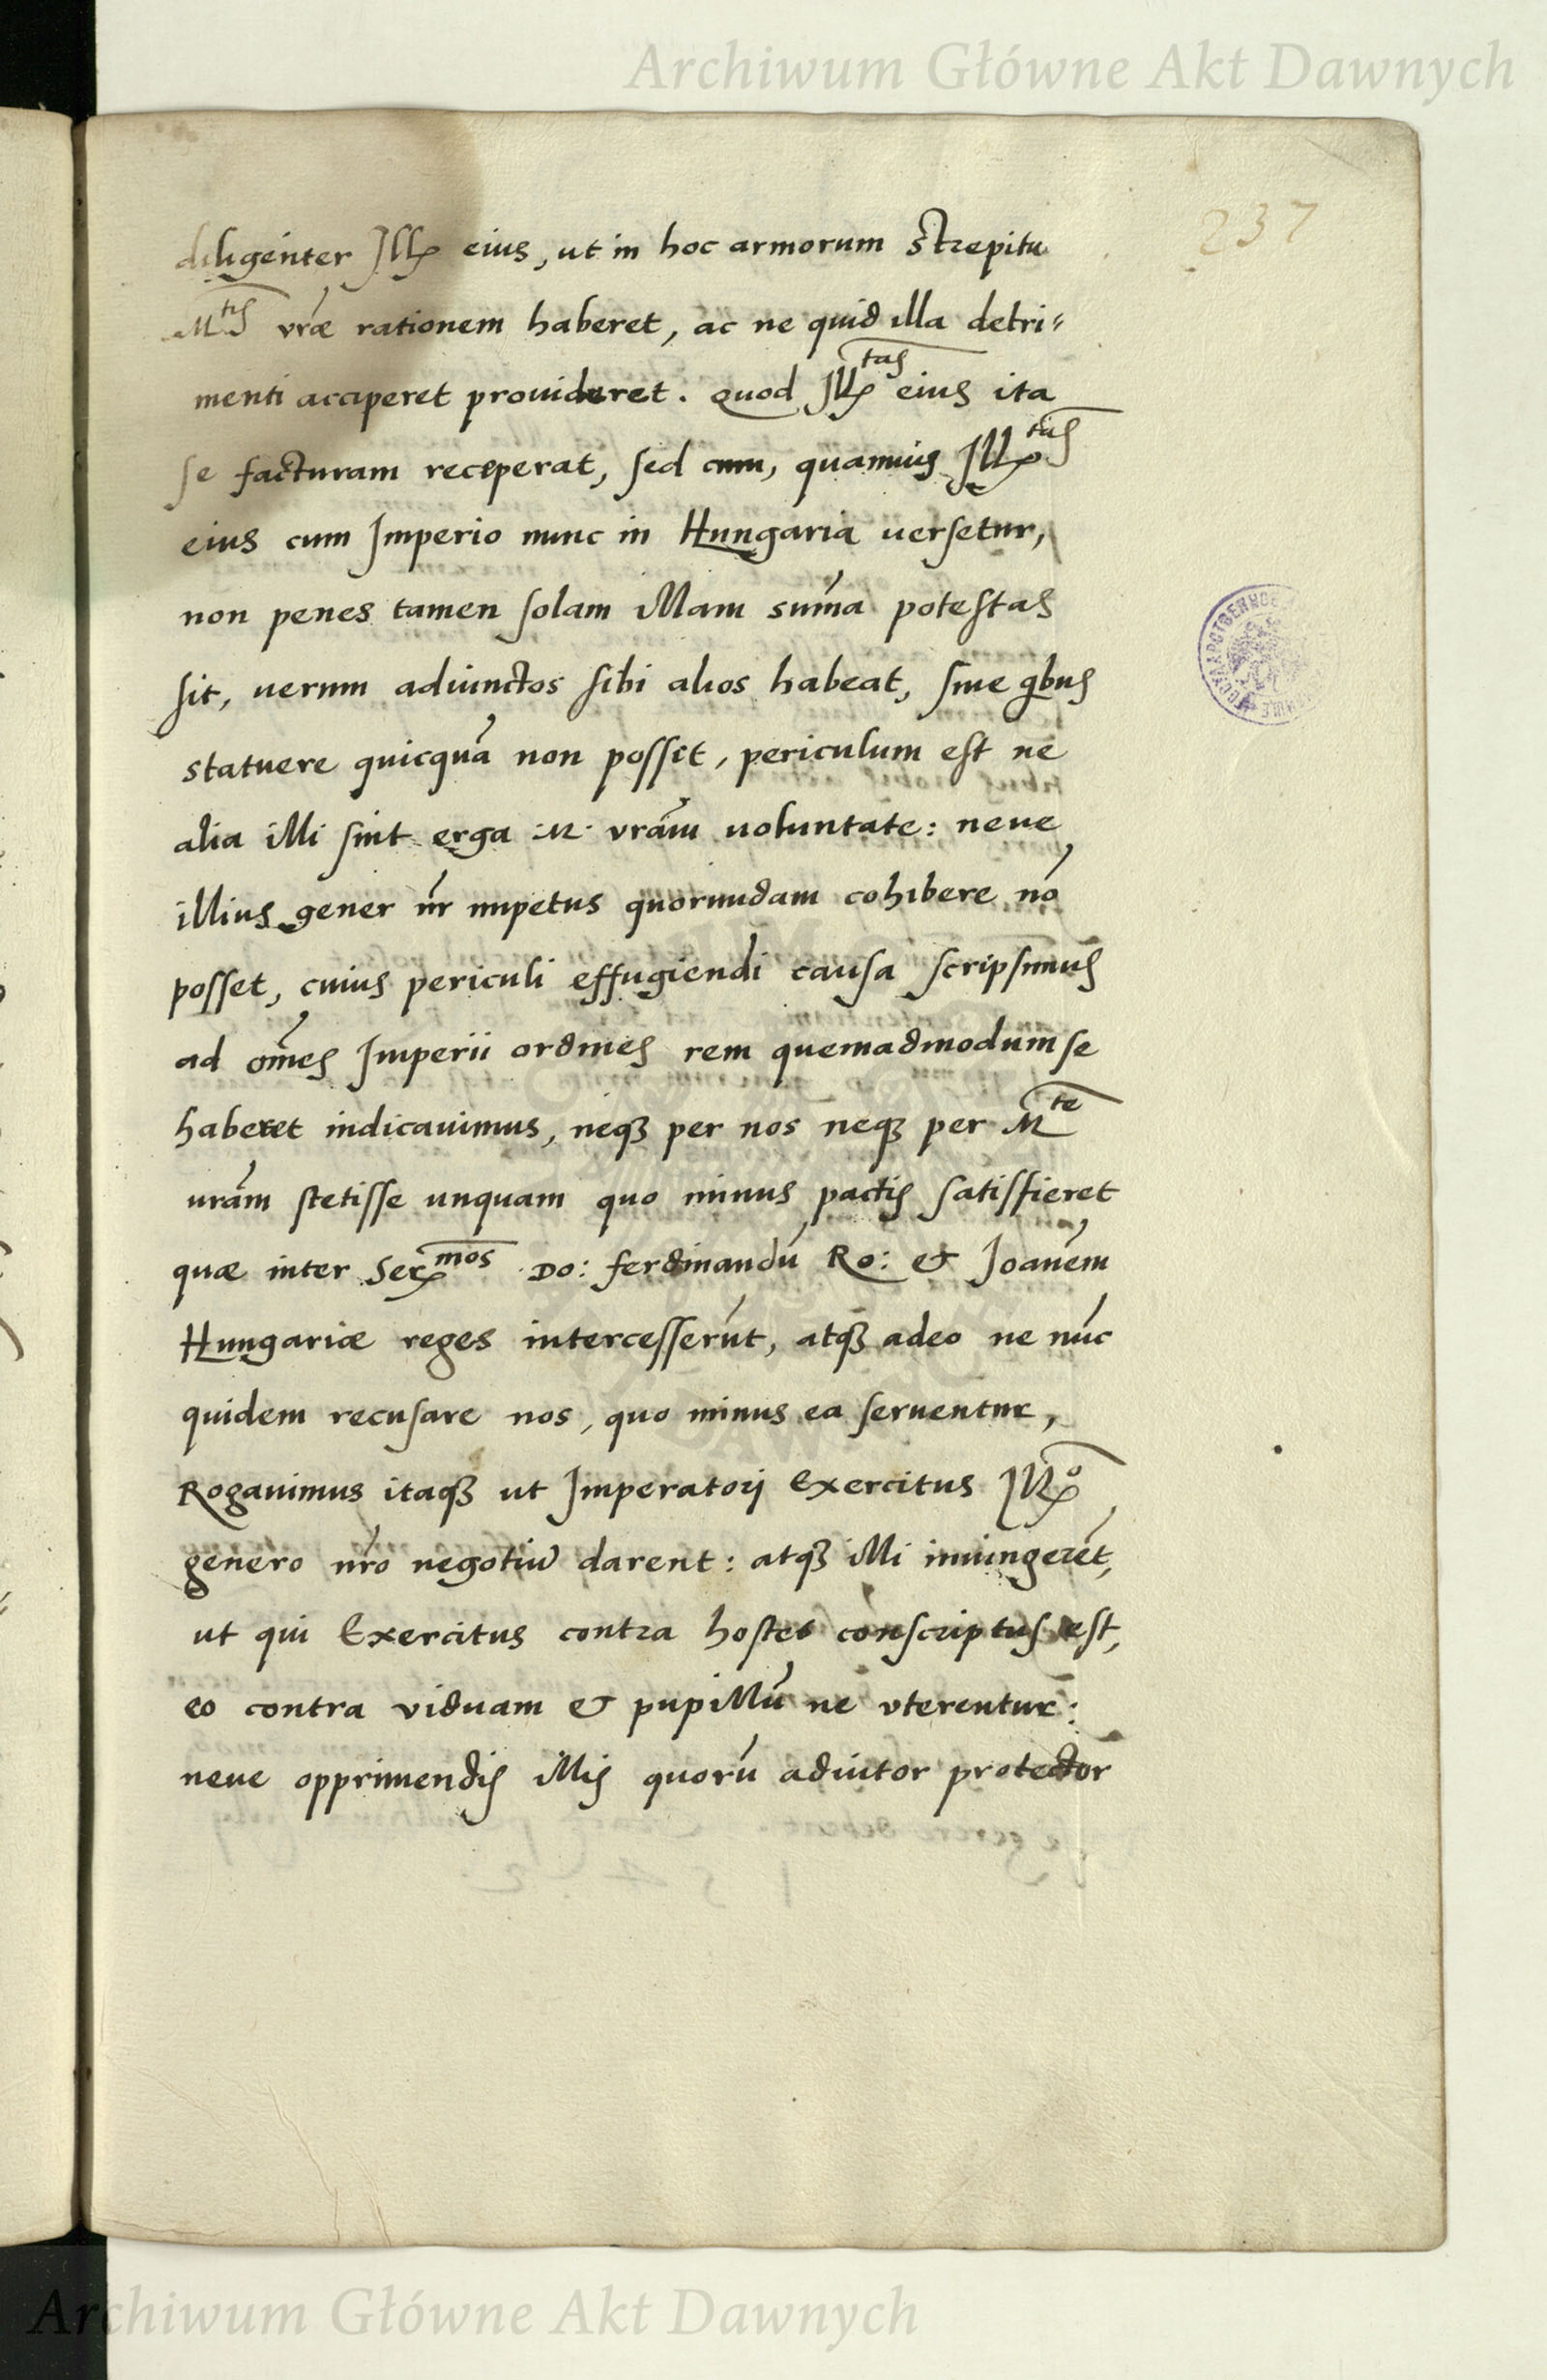 Archiwum Główne Akt Dawnych
237
diligenter Ill. eius, ut in hoc armorum strepitu
M.tis vrae rationem haberet, ac ne quid illa detri=
menti acciperet prouideret. Quod Ill.tas eius ita
se facturam receperat, sed cum, quamuis Ill.tas
eius cum Imperio nunc in Hungaria versetur,
non penes tamen solam illam suma potestas
sit, uerum adiunctos sibi alios habeat, sine qbus
statuere quicquā non possit, periculum est ne
alia illi sint erga .M. vram uoluntate: neue
illius gener nr impetus quorundam cohibere nō
posset, cuius periculi effugiendi causa scripsimus
ad oms Imperii ordines rem quemadmodum se
haberet indicauimus, neq3 per nos neq3 per M.te
uram stetisse unquam quo minus pactis satisfieret
quae inter Ser.mos Do: ferdinandū Ro: & Joanem
Hungariae reges intercesserūt, atq3 adeo ne nūc
quidem recusare nos, quo minus ea seruentur,
Rogauimus itaq3 ut Imperatorij Exercitus Ill.o
genero nro negotiū darent: atq3 illi iniungerēt,
ut qui Exercitus contra hostes conscriptus est,
eo contra viduam & pupillū ne vterentur:
neue opprimendis illis quorū adiutor protector
Archiwum Główne Akt Dawnych